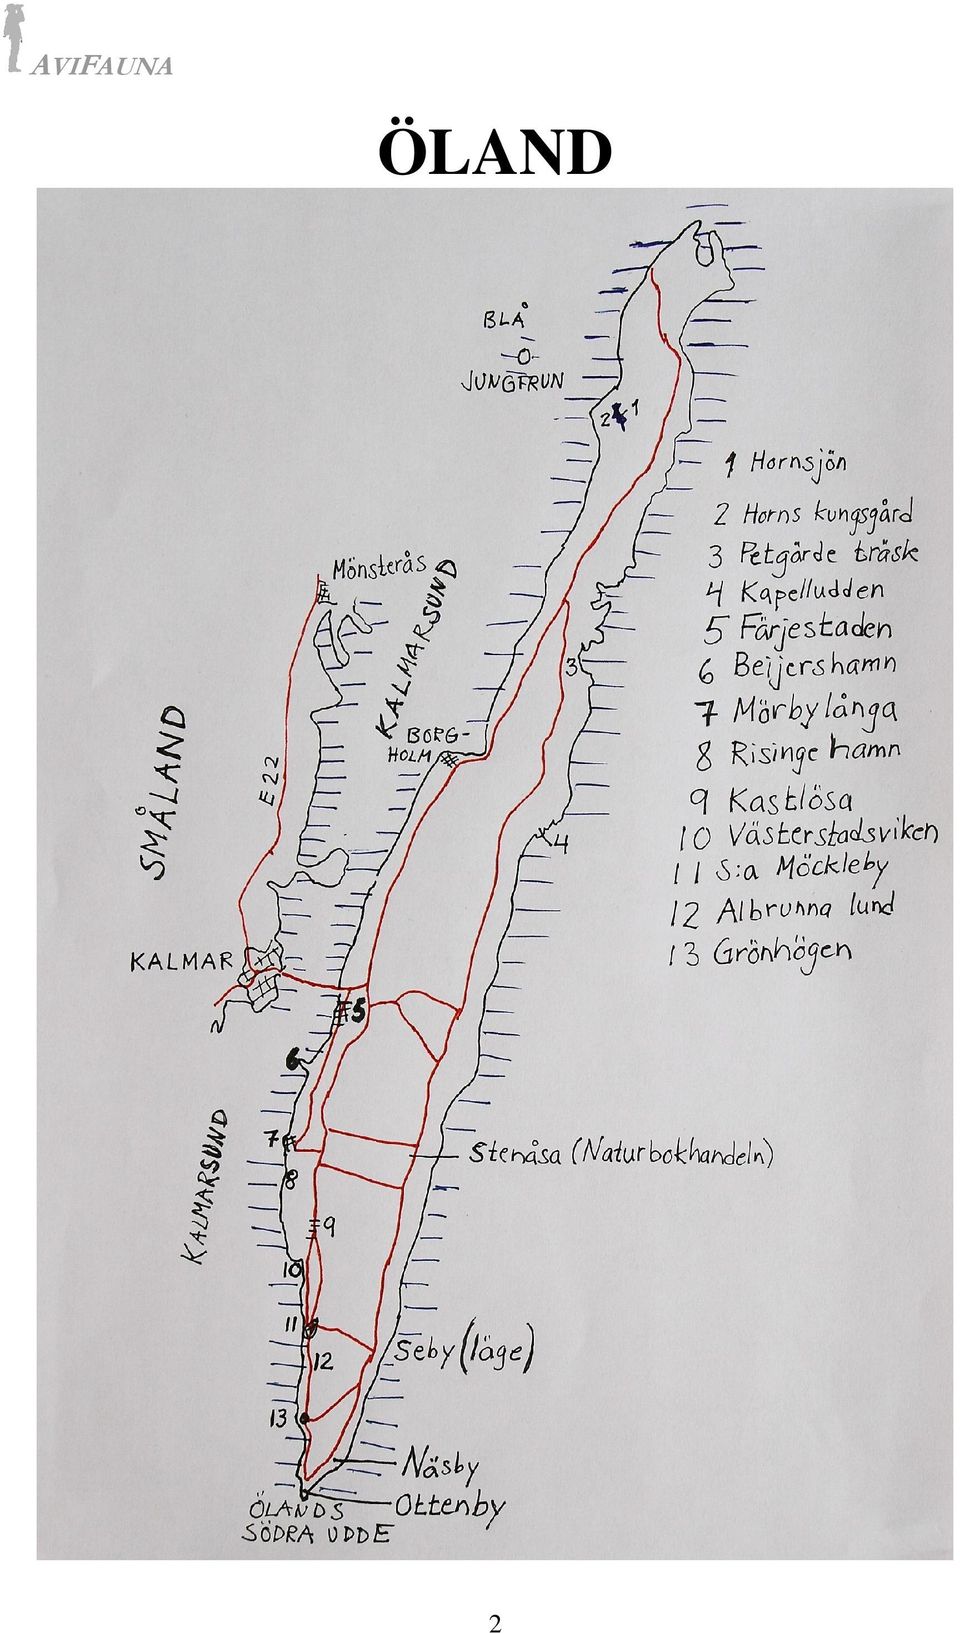 AVIFAUNA
ÖLAND
BLÅ
JUNGFRUN
2 1
1 Hornsjön
2 Horns kungsgård
3 Petgärde träsk
4 Kapelludden
5 Färjestaden
6 Beijershamn
7 Mörbylånga
8 Risinge hamn
9 Kastlösa
10 Västerstadsviken
11 S:a Möckleby
12 Albrunna lund
13 Grönhögen
Mönsterås
KALMARSUND
3
SMÅLAND
E22
BORG-
HOLM
4
KALMAR
5
6
7
KALMARSUND
Stenåsa (Naturbokhandeln)
8
9
10
11
12
Seby (läge)
13
Näsby
Ottenby
ÖLANDS
SÖDRA UDDE
2